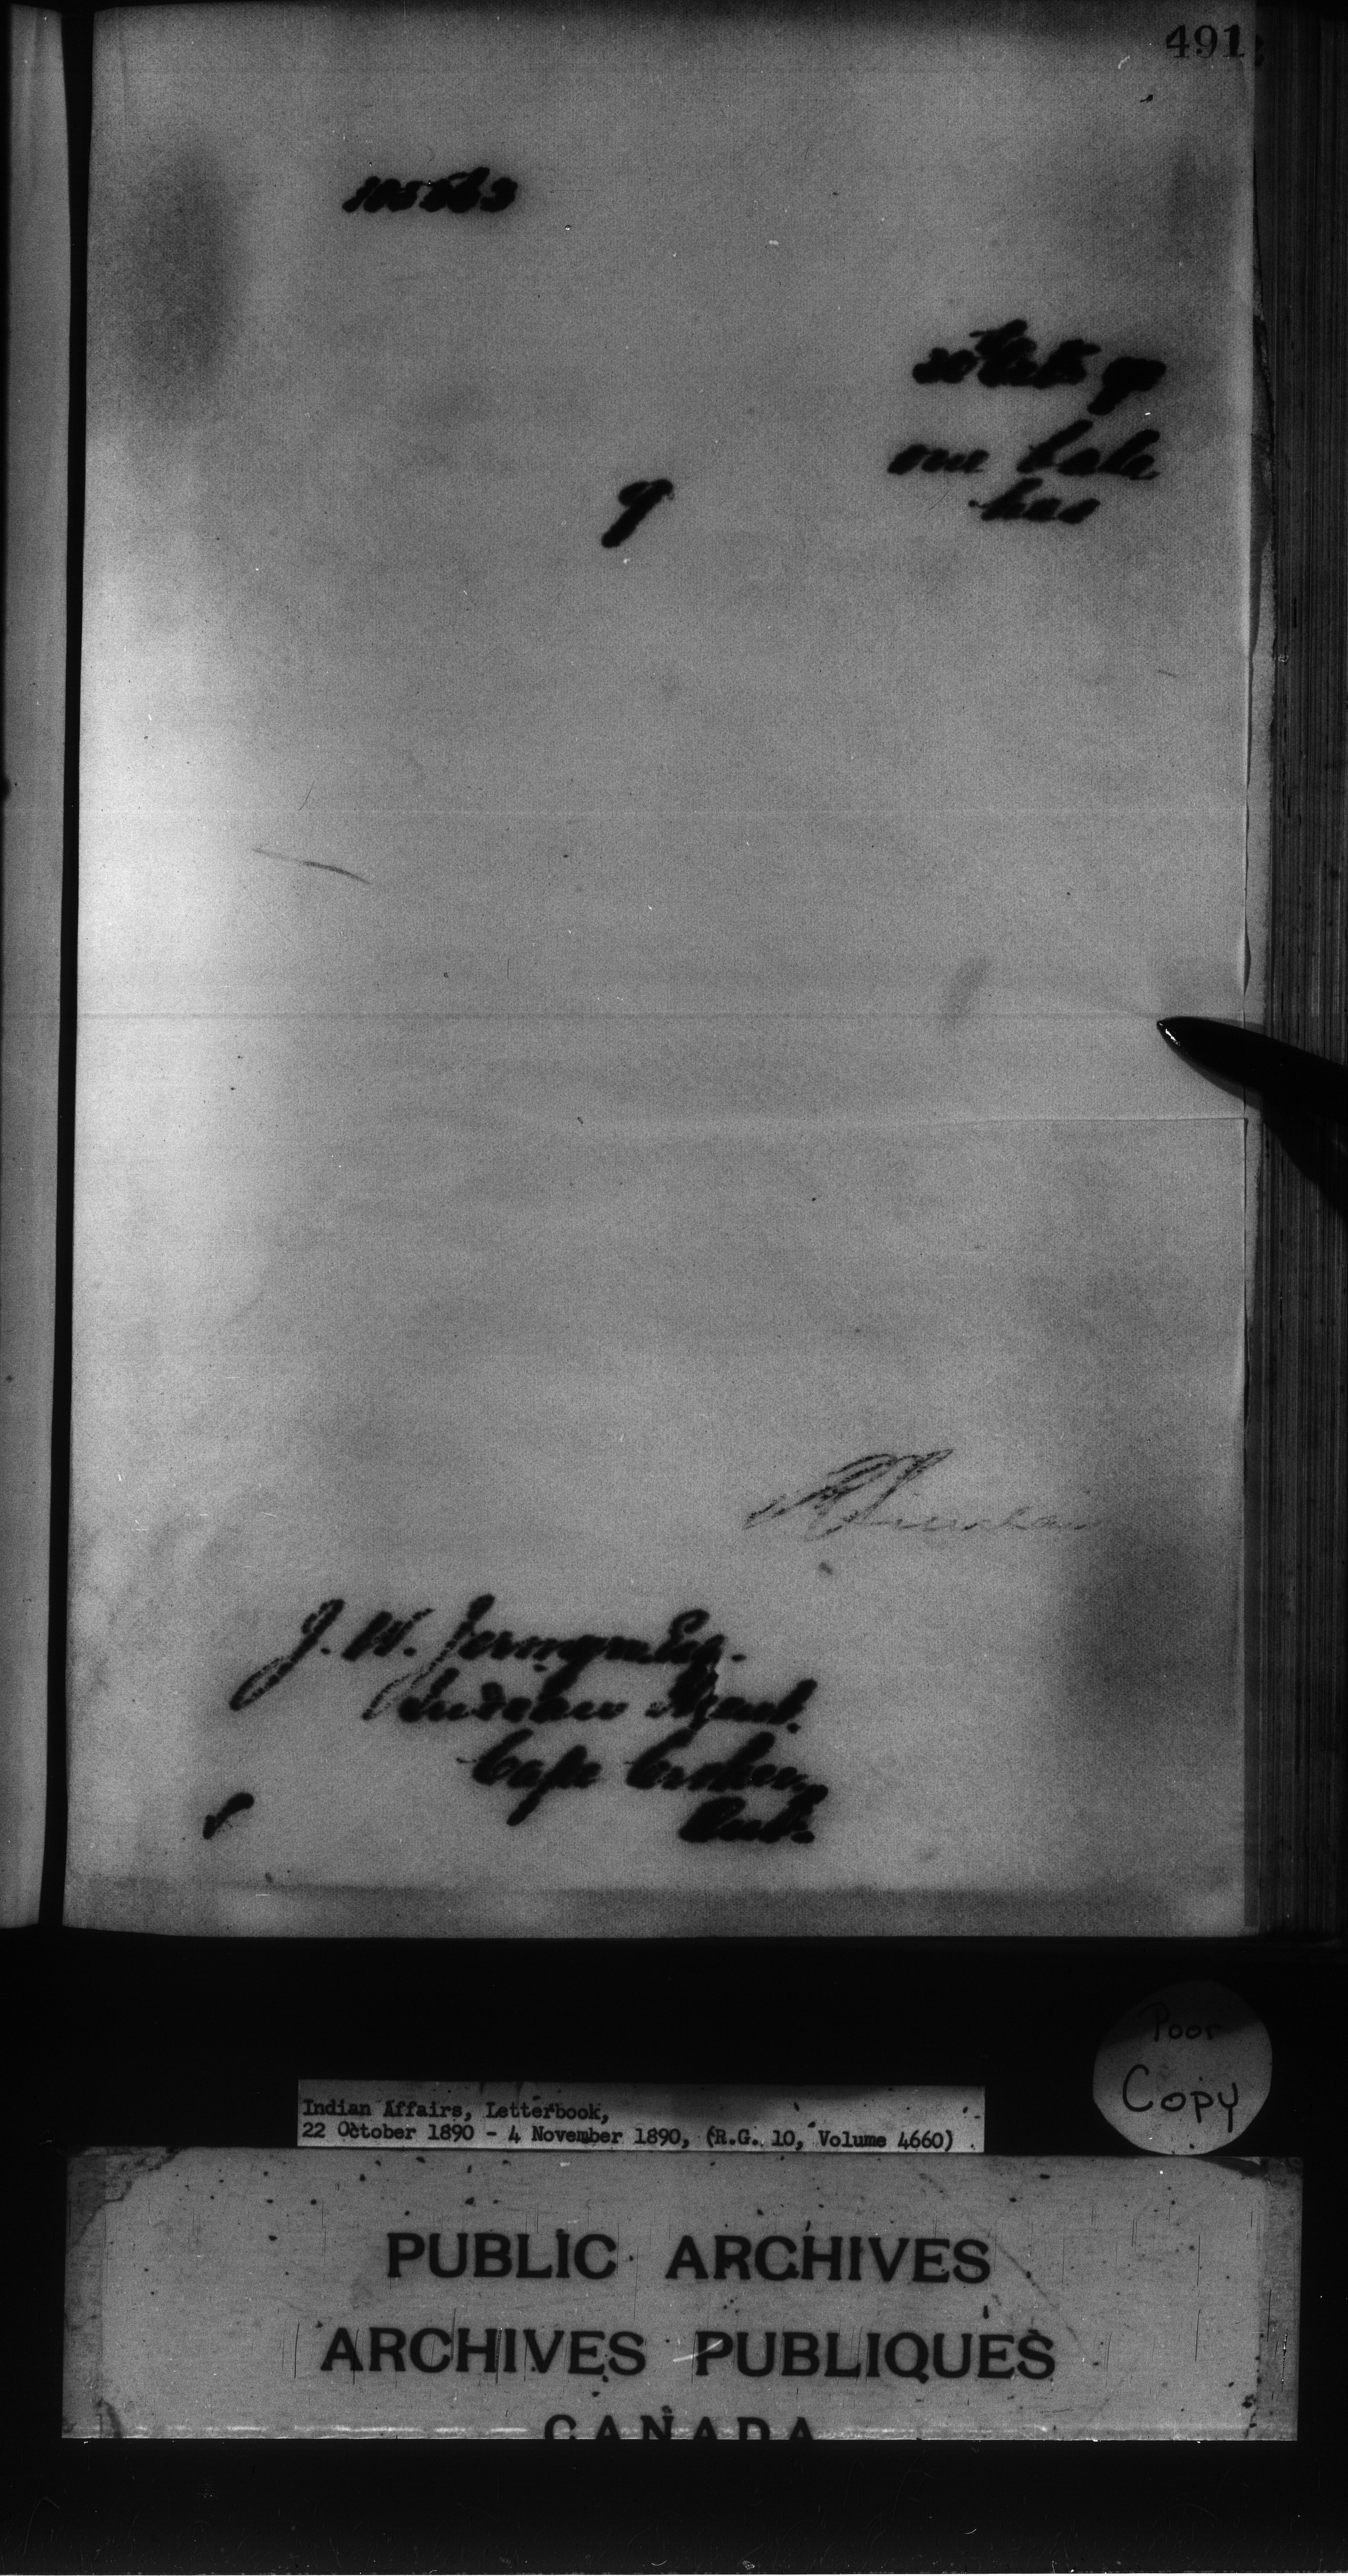 491
one bale
has
J. W. Jermyn Esq.
Indian Agent.
Cape Croker,
Ont.
Poor
Copy
Indian Affairs, Letterbook,
22 October 1890 - 4 November 1890, (R.G. 10, Volume 4660)
PUBLIC ARCHIVES
ARCHIVES PUBLIQUES
CANADA